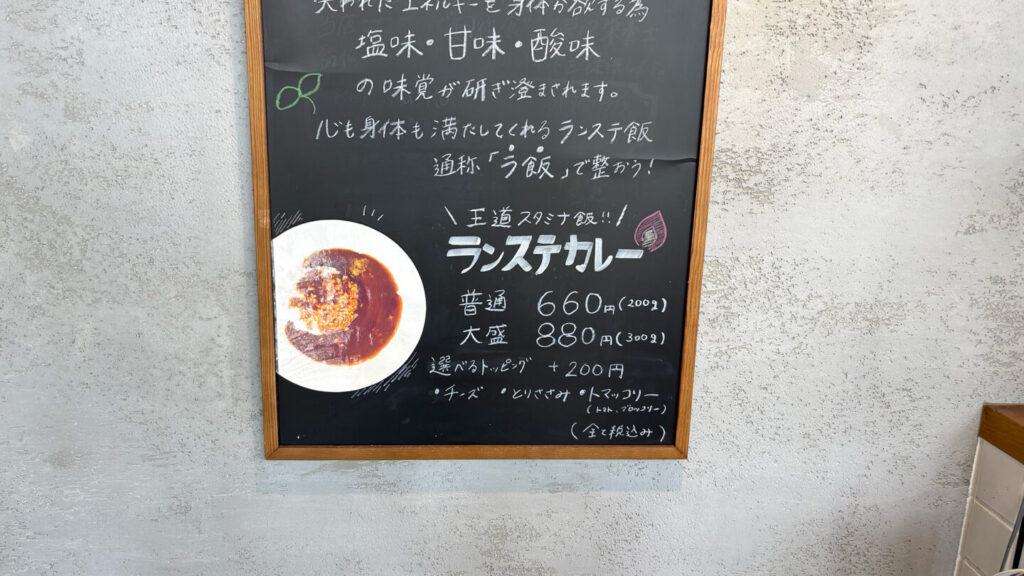 失われたエネルギーを身体が欲する為
塩味・甘味・酸味
の味覚が研ぎ澄まされます。
心も身体も満たしてくれるランステ飯
通称「ラ飯」で整おう!
\ 王道スタミナ飯!! /
ランステカレー
普通 660円(200g)
大盛 880円(300g)
選べるトッピング +200円
・チーズ ・とりささみ ・トマッコリー
(トマト、ブロッコリー)
(全て税込み)